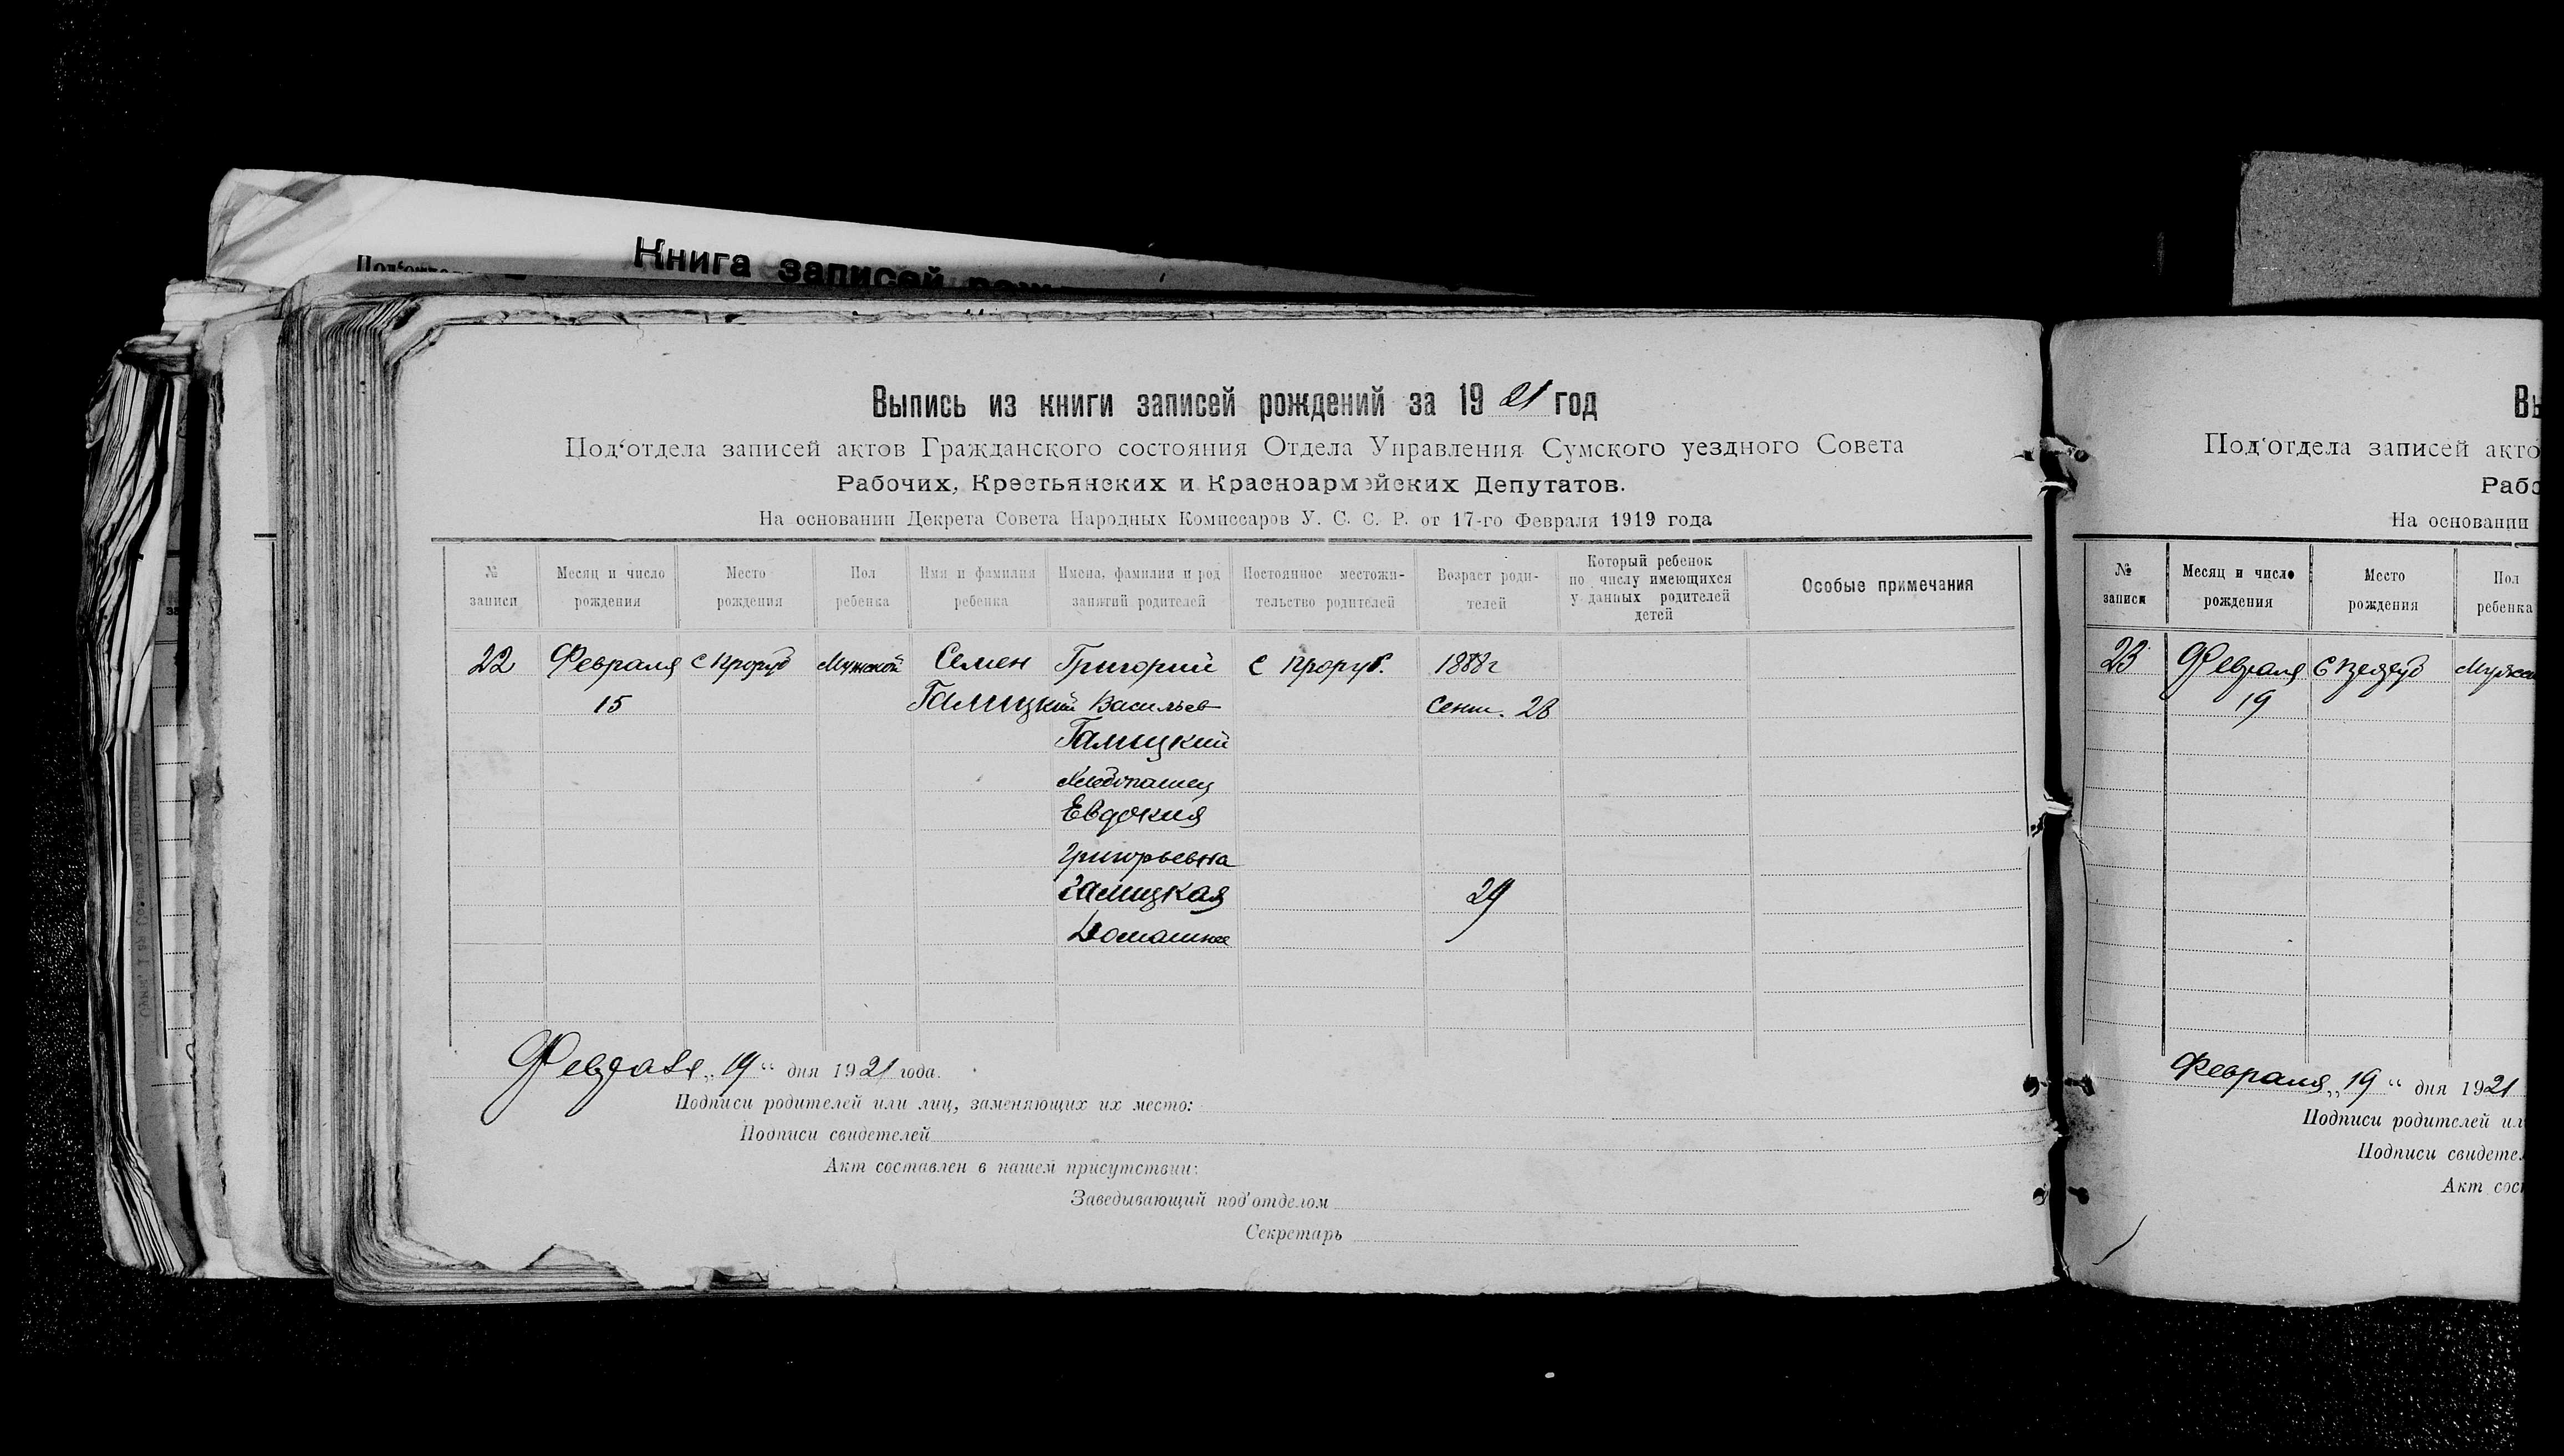 Книга записей
Выпись из книги записей рождений за 1921 год
Под‘отдела записей актов Гражданского состояния Отдела Управления Сумского уездного Совета
Рабочих, Крестьянских и Красноармейских Депутатов.
На основании Декрета Совета Народных Комиссаров У. С. С. Р. от 17-го Февраля 1919 года
№ записи
Месяц и число рождения
Место рождения
Пол ребенка
Имя и фамилия ребенка
Имена, фамилии и род занятий родителей
Постоянное местожительство родителей
Возраст родителей
Который ребенок по числу имеющихся у данных родителей детей
Особые примечания
22 Февраля с Проруб Мужской Семен Григорий с Проруб. 1888г
15 Галицкий Васильев Сент. 28
Галицкий
Хлебопашец
Евдокия
Григорьевна
Галицкая 29
Домашнее
Февраля „19“ дня 1921 года.
Подписи родителей или лиц, заменяющих их место:
Подписи свидетелей
Акт составлен в нашем присутствии:
Заведывающий под‘отделом
Секретарь
Вы
Под‘отдела записей акто
Рабо
На основании
№ записи
Месяц и число рождения
Место рождения
Пол ребенка
23 Февраля с Проруб
19
Февраля „19“ дня 1921
Подписи родителей ил
Подписи свидетел
Акт сост